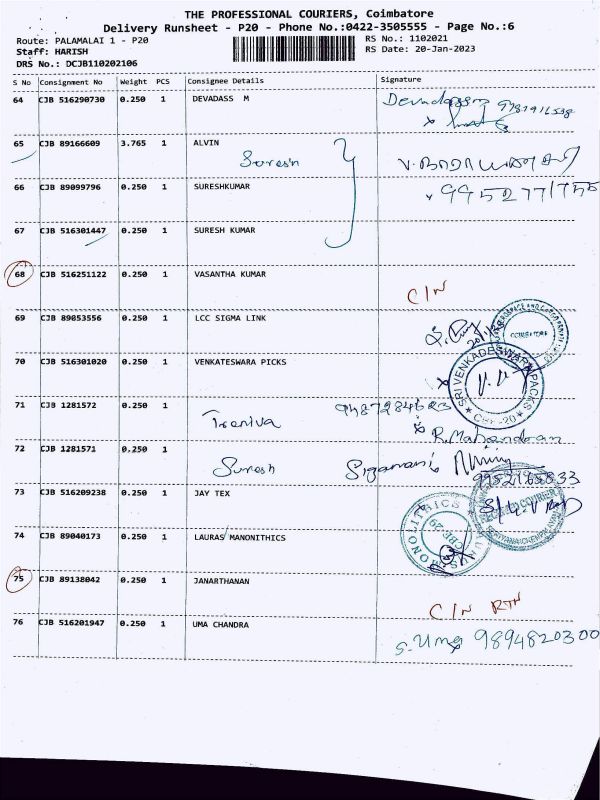 THE PROFESSIONAL COURIERS, Coimbatore
Delivery Runsheet - P20 - Phone No.:0422-3505555 - Page No.:6
Route: PALAMALAI 1 - P20 RS No.: 1102021
Staff: HARISH RS Date: 20-Jan-2023
DRS No.: DCJB110202106
S No Consignment No Weight PCS Consignee Details Signature
64 CJB 516290730 0.250 1 DEVADASS M Devadass m
65 CJB 89166609 3.765 1 ALVIN
Suresh
66 CJB 89099796 0.250 1 SURESHKUMAR
67 CJB 516301447 0.250 1 SURESH KUMAR
68 CJB 516251122 0.250 1 VASANTHA KUMAR
C/N
69 CJB 89053556 0.250 1 LCC SIGMA LINK
COIMBATORE
70 CJB 516301020 0.250 1 VENKATESWARA PICKS
SRI VENKADESWARA PACKS
CBE-20
71 CJB 1281572 0.250 1
R. Mahendran
72 CJB 1281571 0.250 1
Suresh Sigamani
9952165833
73 CJB 516209238 0.250 1 JAY TEX
74 CJB 89040173 0.250 1 LAURAS MANONITHICS
CBE-29
75 CJB 89138042 0.250 1 JANARTHANAN
C/N RTN
76 CJB 516201947 0.250 1 UMA CHANDRA
S. Uma 9894820300